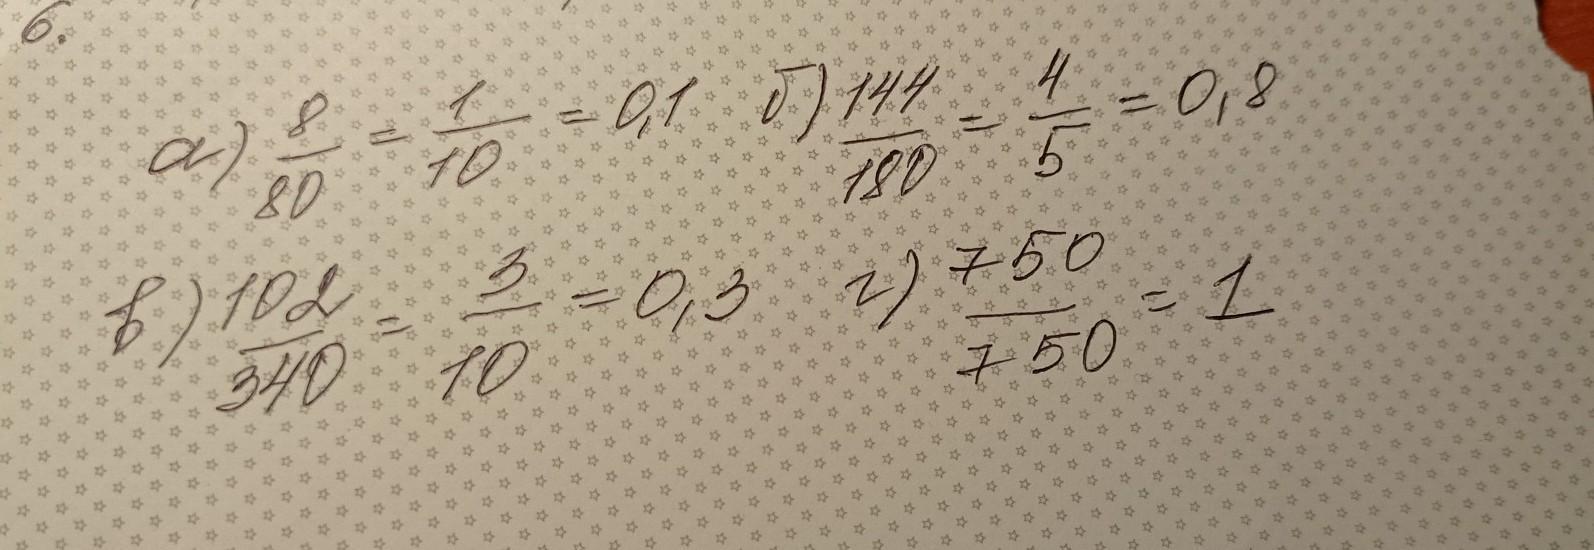 6.
а) 8/80 = 1/10 = 0,1 б) 144/180 = 4/5 = 0,8
в) 102/340 = 3/10 = 0,3 г) 750/750 = 1